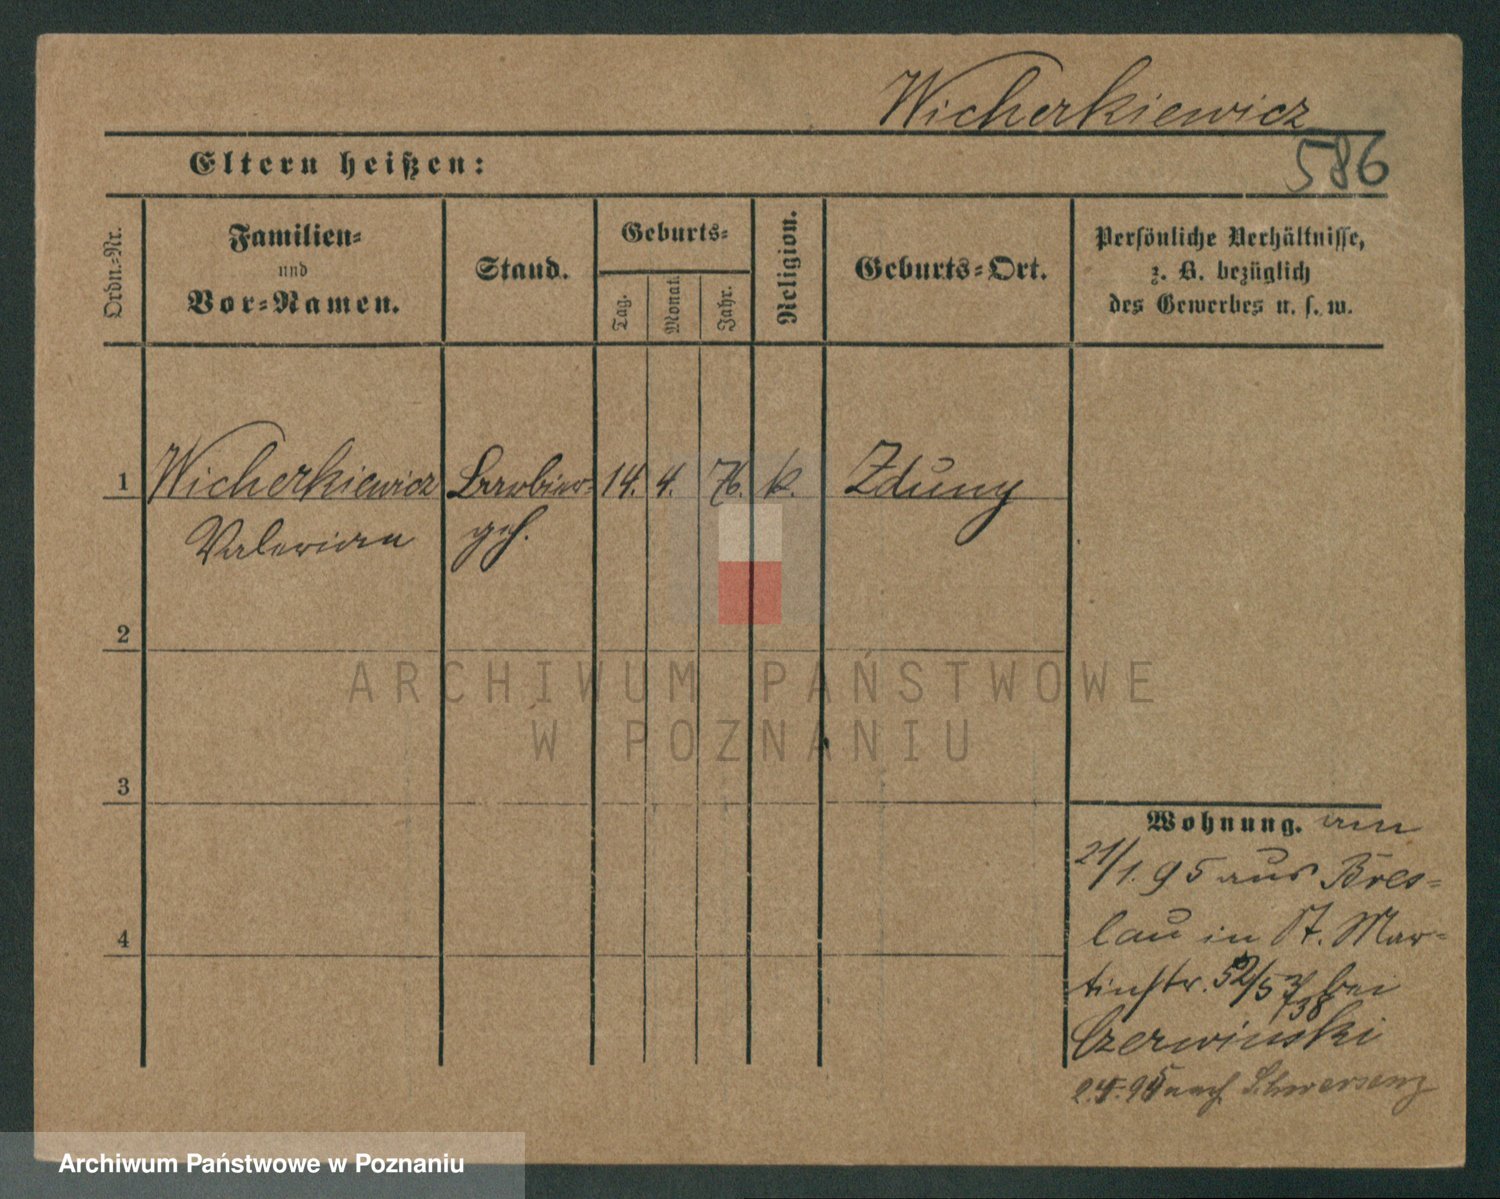 Wicherkiewicz
586
Eltern heißen:
Ordn.-Nr.
Familien-
und
Vor-Namen.
Stand.
Geburts-
Tag.
Monat.
Jahr.
Religion.
Geburts-Ort.
Persönliche Verhältnisse,
z. B. bezüglich
des Gewerbes u. s. w.
1 Wicherkiewicz Barbier- 14. 4. 76. k. Zduny
Valerian geh.
2
3
4
Wohnung. am
21/1. 95 aus Bres-
lau in St. Mar-
tinstr. 52/53 bei
738
Czerwinski
nach Schwersenz
ARCHIWUM PAŃSTWOWE
W POZNANIU
Archiwum Państwowe w Poznaniu